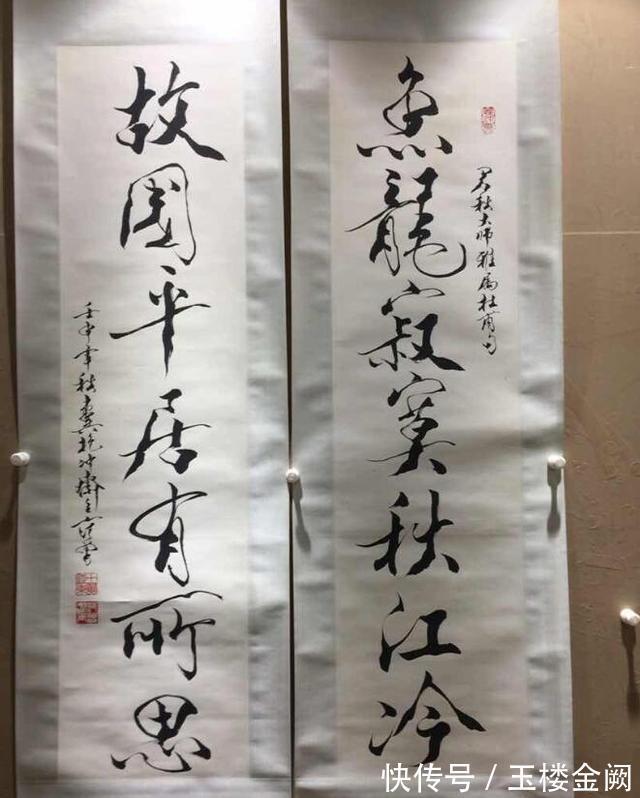 鱼龍寂寞秋江冷
君秋大师雅属杜甫句
故國平居有所思
壬申年秋 冀 范曾
快传号／玉楼金阙